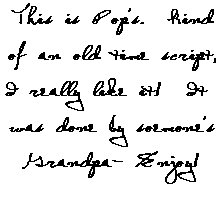 This is Pop's. Kind
of an old time script,
I really like it! It
was done by someone's
Grandpa- Enjoy!